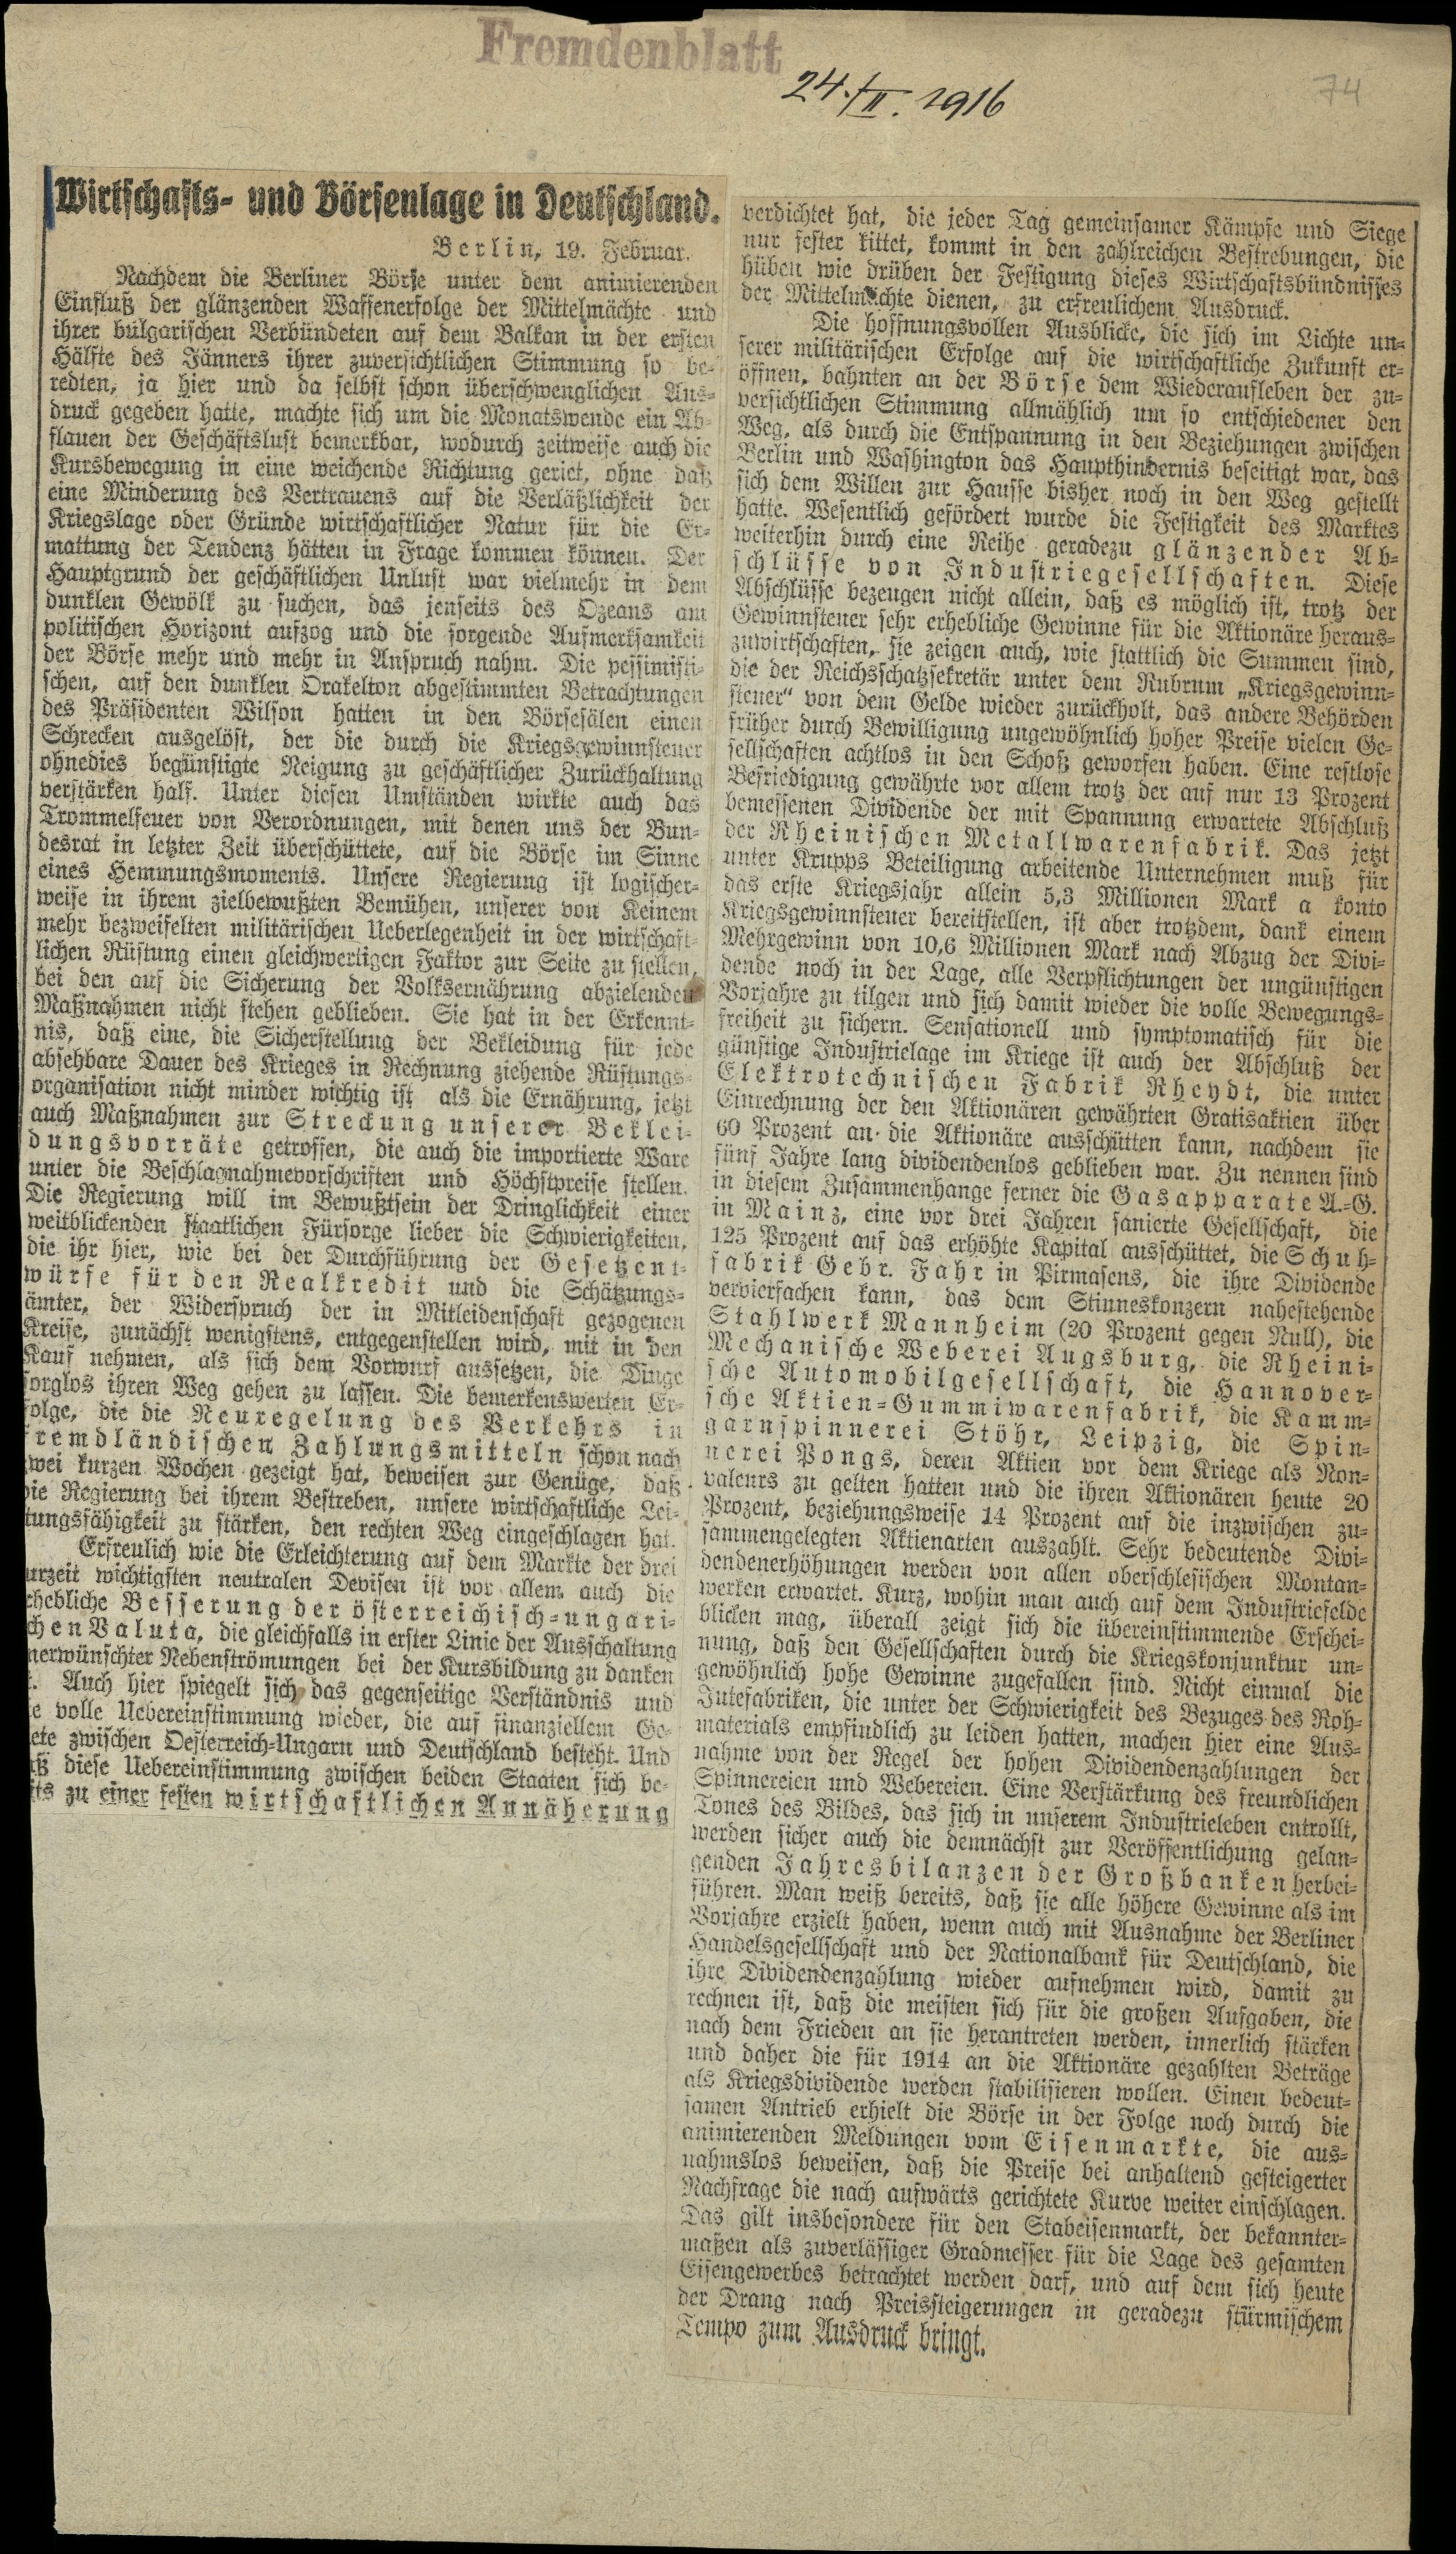 Fremdenblatt
24./II. 1916
74
Wirtschafts- und Börsenlage in Deutschland.
Berlin, 19. Februar.
Nachdem die Berliner Börse unter dem animierenden
Einfluß der glänzenden Waffenerfolge der Mittelmächte und
ihrer bulgarischen Verbündeten auf dem Balkan in der ersten
Hälfte des Jänners ihrer zuversichtlichen Stimmung so be-
redten, ja hier und da selbst schon überschwenglichen Aus-
druck gegeben hatte, machte sich um die Monatswende ein Ab-
flauen der Geschäftslust bemerkbar, wodurch zeitweise auch die
Kursbewegung in eine weichende Richtung geriet, ohne daß
eine Minderung des Vertrauens auf die Verläßlichkeit der
Kriegslage oder Gründe wirtschaftlicher Natur für die Er-
mattung der Tendenz hätten in Frage kommen können. Der
Hauptgrund der geschäftlichen Unlust war vielmehr in dem
dunklen Gewölk zu suchen, das jenseits des Ozeans am
politischen Horizont aufzog und die sorgende Aufmerksamkeit
der Börse mehr und mehr in Anspruch nahm. Die pessimisti-
schen, auf den dunklen Orakelton abgestimmten Betrachtungen
des Präsidenten Wilson hatten in den Börsesälen einen
Schrecken ausgelöst, der die durch die Kriegsgewinnsteuer
ohnedies begünstigte Neigung zu geschäftlicher Zurückhaltung
verstärken half. Unter diesen Umständen wirkte auch das
Trommelfeuer von Verordnungen, mit denen uns der Bun-
desrat in letzter Zeit überschüttete, auf die Börse im Sinne
eines Hemmungsmoments. Unsere Regierung ist logischer-
weise in ihrem zielbewußten Bemühen, unserer von Keinem
mehr bezweifelten militärischen Ueberlegenheit in der wirtschaft-
lichen Rüstung einen gleichwertigen Faktor zur Seite zu stellen,
bei den auf die Sicherung der Volksernährung abzielenden
Maßnahmen nicht stehen geblieben. Sie hat in der Erkennt-
nis, daß eine, die Sicherstellung der Bekleidung für jede
absehbare Dauer des Krieges in Rechnung ziehende Rüstungs-
organisation nicht minder wichtig ist als die Ernährung, jetzt
auch Maßnahmen zur Streckung unserer Beklei-
dungsvorräte getroffen, die auch die importierte Ware
unter die Beschlagnahmevorschriften und Höchstpreise stellen.
Die Regierung will im Bewußtsein der Dringlichkeit einer
weitblickenden staatlichen Fürsorge lieber die Schwierigkeiten,
die ihr hier, wie bei der Durchführung der Gesetzent-
würfe für den Realkredit und die Schätzungs-
ämter, der Widerspruch der in Mitleidenschaft gezogenen
Kreise, zunächst wenigstens, entgegenstellen wird, mit in den
Kauf nehmen, als sich dem Vorwurf aussetzen, die Dinge
sorglos ihren Weg gehen zu lassen. Die bemerkenswerten Er-
folge, die die Neuregelung des Verkehrs in
fremdländischen Zahlungsmitteln schon nach
zwei kurzen Wochen gezeigt hat, beweisen zur Genüge, daß
die Regierung bei ihrem Bestreben, unsere wirtschaftliche Lei-
tungsfähigkeit zu stärken, den rechten Weg eingeschlagen hat.
Erfreulich wie die Erleichterung auf dem Markte der drei
urzeit wichtigsten neutralen Devisen ist vor allem auch die
rhebliche Besserung der österreichisch-ungari-
chen Valuta, die gleichfalls in erster Linie der Ausschaltung
nerwünschter Nebenströmungen bei der Kursbildung zu danken
t. Auch hier spiegelt sich das gegenseitige Verständnis und
e volle Uebereinstimmung wieder, die auf finanziellem Ge-
ete zwischen Oesterreich-Ungarn und Deutschland besteht. Und
aß diese Uebereinstimmung zwischen beiden Staaten sich be-
its zu einer festen wirtschaftlichen Annäherung
verdichtet hat, die jeder Tag gemeinsamer Kämpfe und Siege
nur fester kittet, kommt in den zahlreichen Bestrebungen, die
hüben wie drüben der Festigung dieses Wirtschaftsbündnisses
der Mittelmächte dienen, zu erfreulichem Ausdruck.
Die hoffnungsvollen Ausblicke, die sich im Lichte un-
serer militärischen Erfolge auf die wirtschaftliche Zukunft er-
öffnen, bahnten an der Börse dem Wiederaufleben der zu-
versichtlichen Stimmung allmählich um so entschiedener den
Weg, als durch die Entspannung in den Beziehungen zwischen
Berlin und Washington das Haupthindernis beseitigt war, das
sich dem Willen zur Hausse bisher noch in den Weg gestellt
hatte. Wesentlich gefördert wurde die Festigkeit des Marktes
weiterhin durch eine Reihe geradezu glänzender Ab-
schlüsse von Industriegesellschaften. Diese
Abschlüsse bezeugen nicht allein, daß es möglich ist, trotz der
Gewinnsteuer sehr erhebliche Gewinne für die Aktionäre heraus-
zuwirtschaften, sie zeigen auch, wie stattlich die Summen sind,
die der Reichsschatzsekretär unter dem Rubrum „Kriegsgewinn-
steuer“ von dem Gelde wieder zurückholt, das andere Behörden
früher durch Bewilligung ungewöhnlich hoher Preise vielen Ge-
sellschaften achtlos in den Schoß geworfen haben. Eine restlose
Befriedigung gewährte vor allem trotz der auf nur 13 Prozent
bemessenen Dividende der mit Spannung erwartete Abschluß
der Rheinischen Metallwarenfabrik. Das jetzt
unter Krupps Beteiligung arbeitende Unternehmen muß für
das erste Kriegsjahr allein 5,3 Millionen Mark a konto
Kriegsgewinnsteuer bereitstellen, ist aber trotzdem, dank einem
Mehrgewinn von 10,6 Millionen Mark nach Abzug der Divi-
dende noch in der Lage, alle Verpflichtungen der ungünstigen
Vorjahre zu tilgen und sich damit wieder die volle Bewegungs-
freiheit zu sichern. Sensationell und symptomatisch für die
günstige Industrielage im Kriege ist auch der Abschluß der
Elektrotechnischen Fabrik Rheydt, die unter
Einrechnung der den Aktionären gewährten Gratisaktien über
60 Prozent an die Aktionäre ausschütten kann, nachdem sie
fünf Jahre lang dividendenlos geblieben war. Zu nennen sind
in diesem Zusammenhange ferner die Gasapparate A.-G.
in Mainz, eine vor drei Jahren sanierte Gesellschaft, die
125 Prozent auf das erhöhte Kapital ausschüttet, die Schuh-
fabrik Gebr. Fahr in Pirmasens, die ihre Dividende
vervierfachen kann, das dem Stinneskonzern nahestehende
Stahlwerk Mannheim (20 Prozent gegen Null), die
Mechanische Weberei Augsburg, die Rheini-
sche Automobilgesellschaft, die Hannover-
sche Aktien-Gummiwarenfabrik, die Kamm-
garnspinnerei Stöhr, Leipzig, die Spin-
nerei Pongs, deren Aktien vor dem Kriege als Non-
valeurs zu gelten hatten und die ihren Aktionären heute 20
Prozent, beziehungsweise 14 Prozent auf die inzwischen zu-
sammengelegten Aktienarten auszahlt. Sehr bedeutende Divi-
dendenerhöhungen werden von allen oberschlesischen Montan-
werken erwartet. Kurz, wohin man auch auf dem Industriefelde
blicken mag, überall zeigt sich die übereinstimmende Erschei-
nung, daß den Gesellschaften durch die Kriegskonjunktur un-
gewöhnlich hohe Gewinne zugefallen sind. Nicht einmal die
Jutefabriken, die unter der Schwierigkeit des Bezuges des Roh-
materials empfindlich zu leiden hatten, machen hier eine Aus-
nahme von der Regel der hohen Dividendenzahlungen der
Spinnereien und Webereien. Eine Verstärkung des freundlichen
Tones des Bildes, das sich in unserem Industrieleben entrollt,
werden sicher auch die demnächst zur Veröffentlichung gelan-
genden Jahresbilanzen der Großbanken herbei-
führen. Man weiß bereits, daß sie alle höhere Gewinne als im
Vorjahre erzielt haben, wenn auch mit Ausnahme der Berliner
Handelsgesellschaft und der Nationalbank für Deutschland, die
ihre Dividendenzahlung wieder aufnehmen wird, damit zu
rechnen ist, daß die meisten sich für die großen Aufgaben, die
nach dem Frieden an sie herantreten werden, innerlich stärken
und daher die für 1914 an die Aktionäre gezahlten Beträge
als Kriegsdividende werden stabilisieren wollen. Einen bedeut-
samen Antrieb erhielt die Börse in der Folge noch durch die
animierenden Meldungen vom Eisenmarkte, die aus-
nahmslos beweisen, daß die Preise bei anhaltend gesteigerter
Nachfrage die nach aufwärts gerichtete Kurve weiter einschlagen.
Das gilt insbesondere für den Stabeisenmarkt, der bekannter-
maßen als zuverlässiger Gradmesser für die Lage des gesamten
Eisengewerbes betrachtet werden darf, und auf dem sich heute
der Drang nach Preissteigerungen in geradezu stürmischem
Tempo zum Ausdruck bringt.